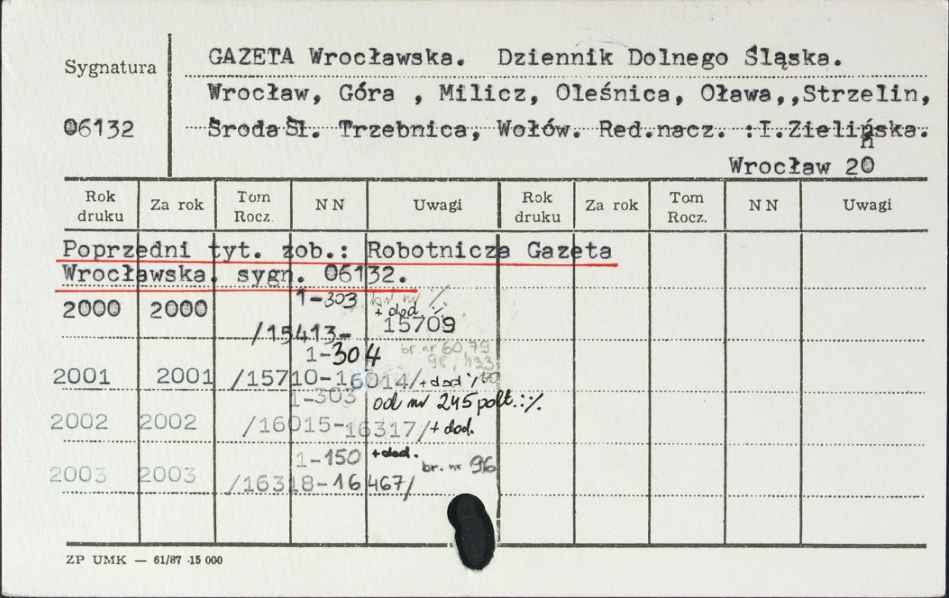 GAZETA Wrocławska. Dziennik Dolnego Śląska.
Sygnatura
Wrocław, Góra , Milicz, Oleśnica, Oława,,Strzelin,
06132 Środa Śl. Trzebnica, Wołów. Red.nacz. :I.Zielińska.
Wrocław 20
Rok druku Za rok Tom Rocz. NN Uwagi Rok druku Za rok Tom Rocz. NN Uwagi
Poprzedni tyt. zob.: Robotnicza Gazeta
Wrocławska. sygn. 06132.
1-303
2000 2000 + dod. ·/.
/15413- 15709
1-304 br nr 60, 79
2001 2001 /15710-16014/+dod
1-303 od nr 245 polt.:·/.
2002 2002 /16015-16317/+dod.
1-150 +dod. br. nr 96
2003 2003 /16318-16467/
ZP UMK — 61/87 ·15 000